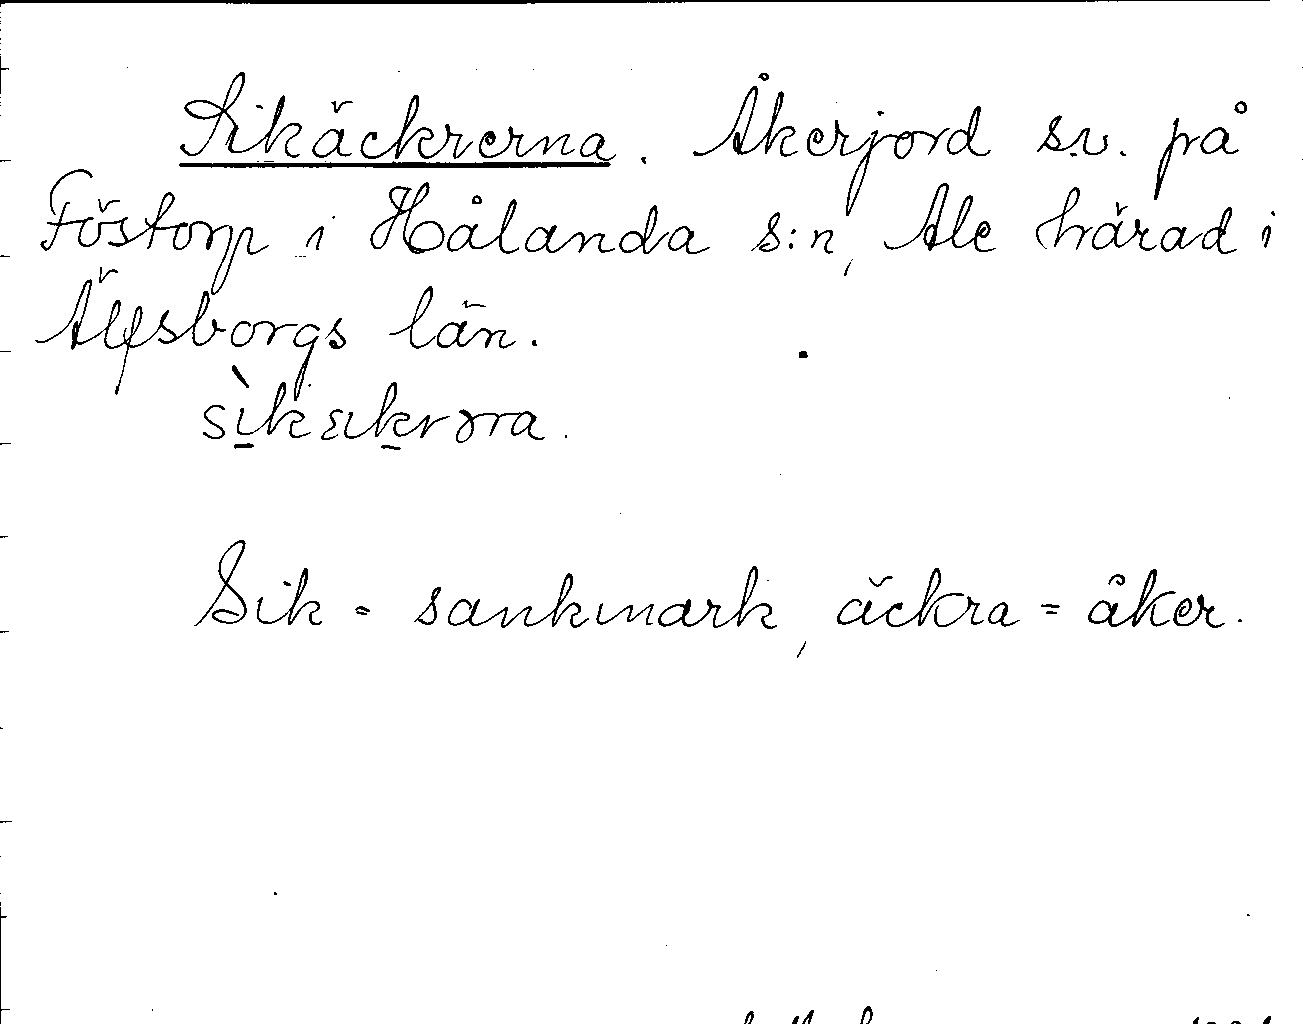 Sikäckrerna. Åkerjord s.v. på
Föstorp i Hålanda s:n, Ale härad i
Älfsborgs län.
Sik = sankmark, äckra = åker.